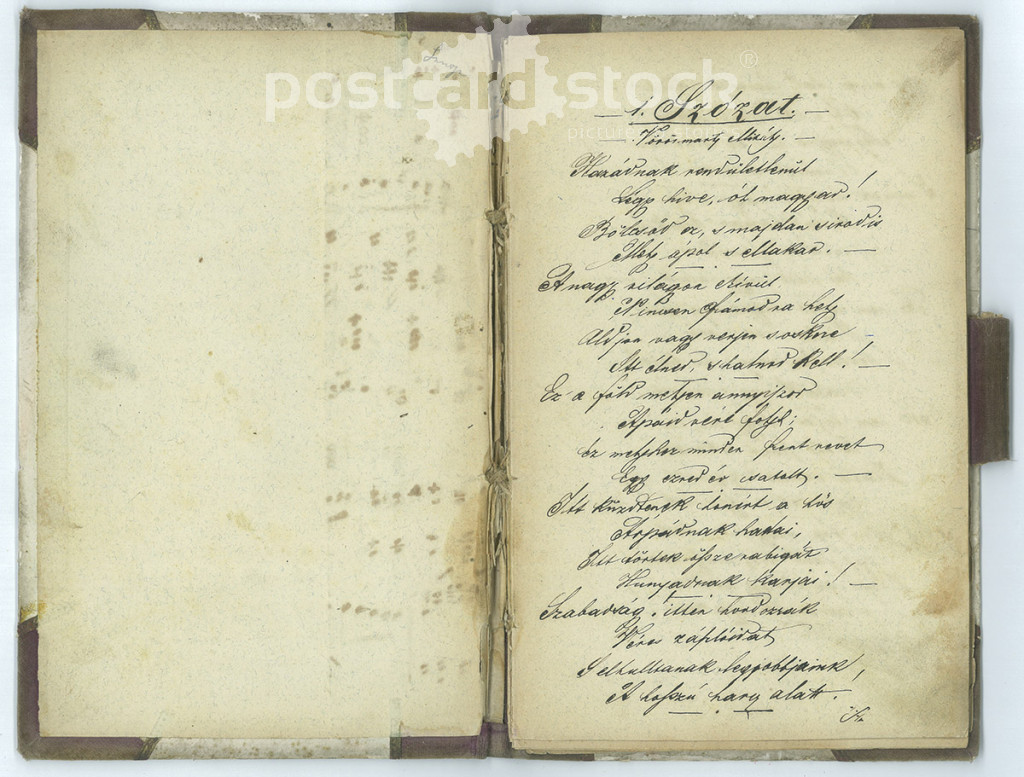 postcard stock®
picture
1. Szózat.
Vörösmarty Mihály.
Hazádnak rendületlenűl
Légy hive, óh magyar!
Bölcsőd ez, s majdan sirod is
Mely ápol s eltakar. —
A nagy világon kivül
Nincsen számodra hely
Áldjon vagy verjen sors keze
Itt élned, s halnod kell! —
Ez a föld melyen annyiszor
Apáid vére folyt;
Ez melyhez minden szent nevet
Egy ezred év csatolt. —
Itt küzdtenek honért a hős
Árpádnak hadai,
Itt törtek össze rabigát
Hunyadnak karjai! —
Szabadság, itten hordozzák
Véres zászlóidat
S elhulltanak legjobbjaink,
A hosszú harcz alatt.